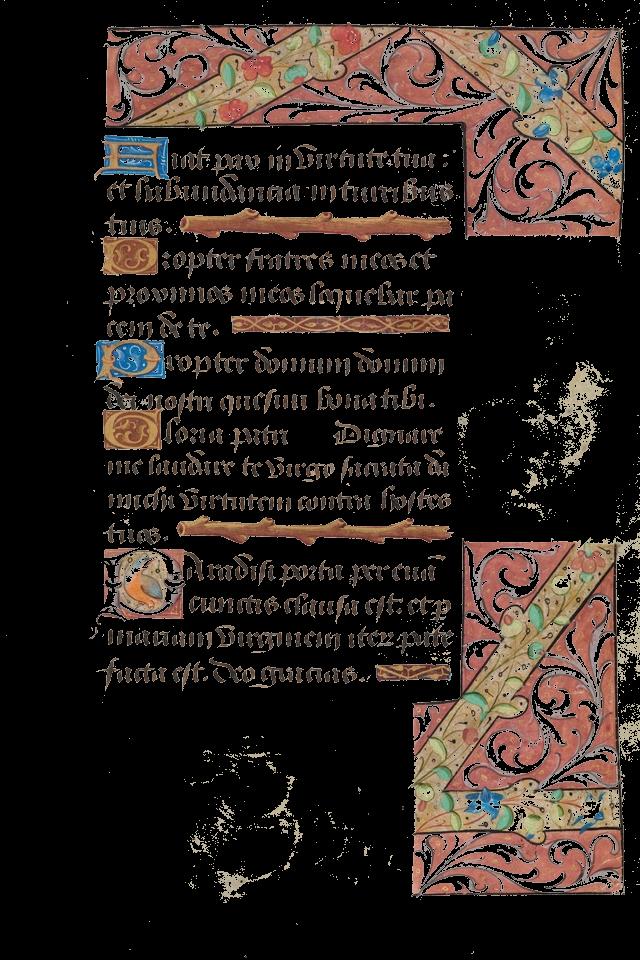 Fiat pax in virtute tua:
et habundancia in turribus
tuis.
Propter fratres meos et
proximos meos loquebar pa
cem de te.
Propter domum domini
dei nostri quesiui bona tibi.
Gloria patri Dignare
me laudare te virgo sacrata da
michi virtutem contra hostes
tuos.
Paradisi porta per euã
cunctis clausa est: et p
mariam virginem iterz pate
facta est. deo gracias.